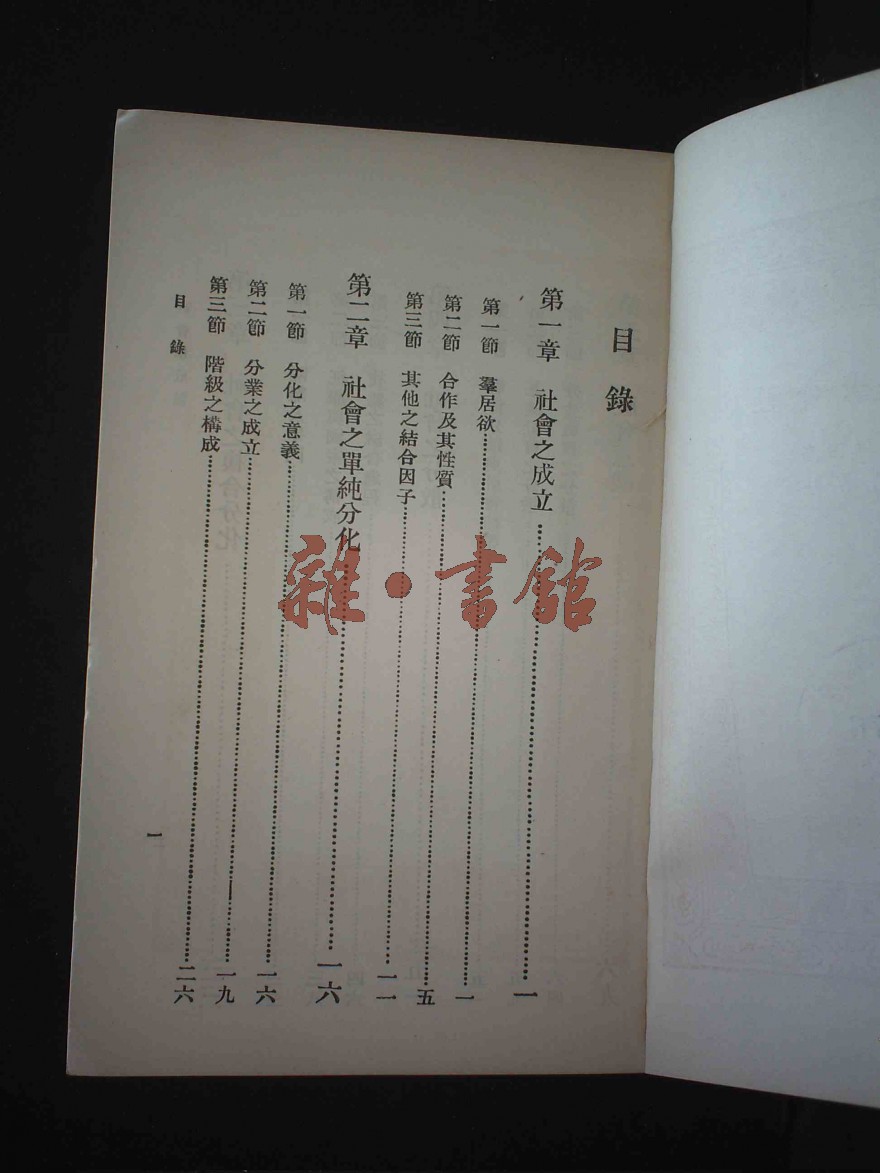 目錄
第一章 社會之成立……一
第一節 羣居欲……一
第二節 合作及其性質……五
第三節 其他之結合因子……一一
第二章 社會之單純分化……一六
第一節 分化之意義……一六
第二節 分業之成立……一九
第三節 階級之構成……二六
目錄
一
雜·書館